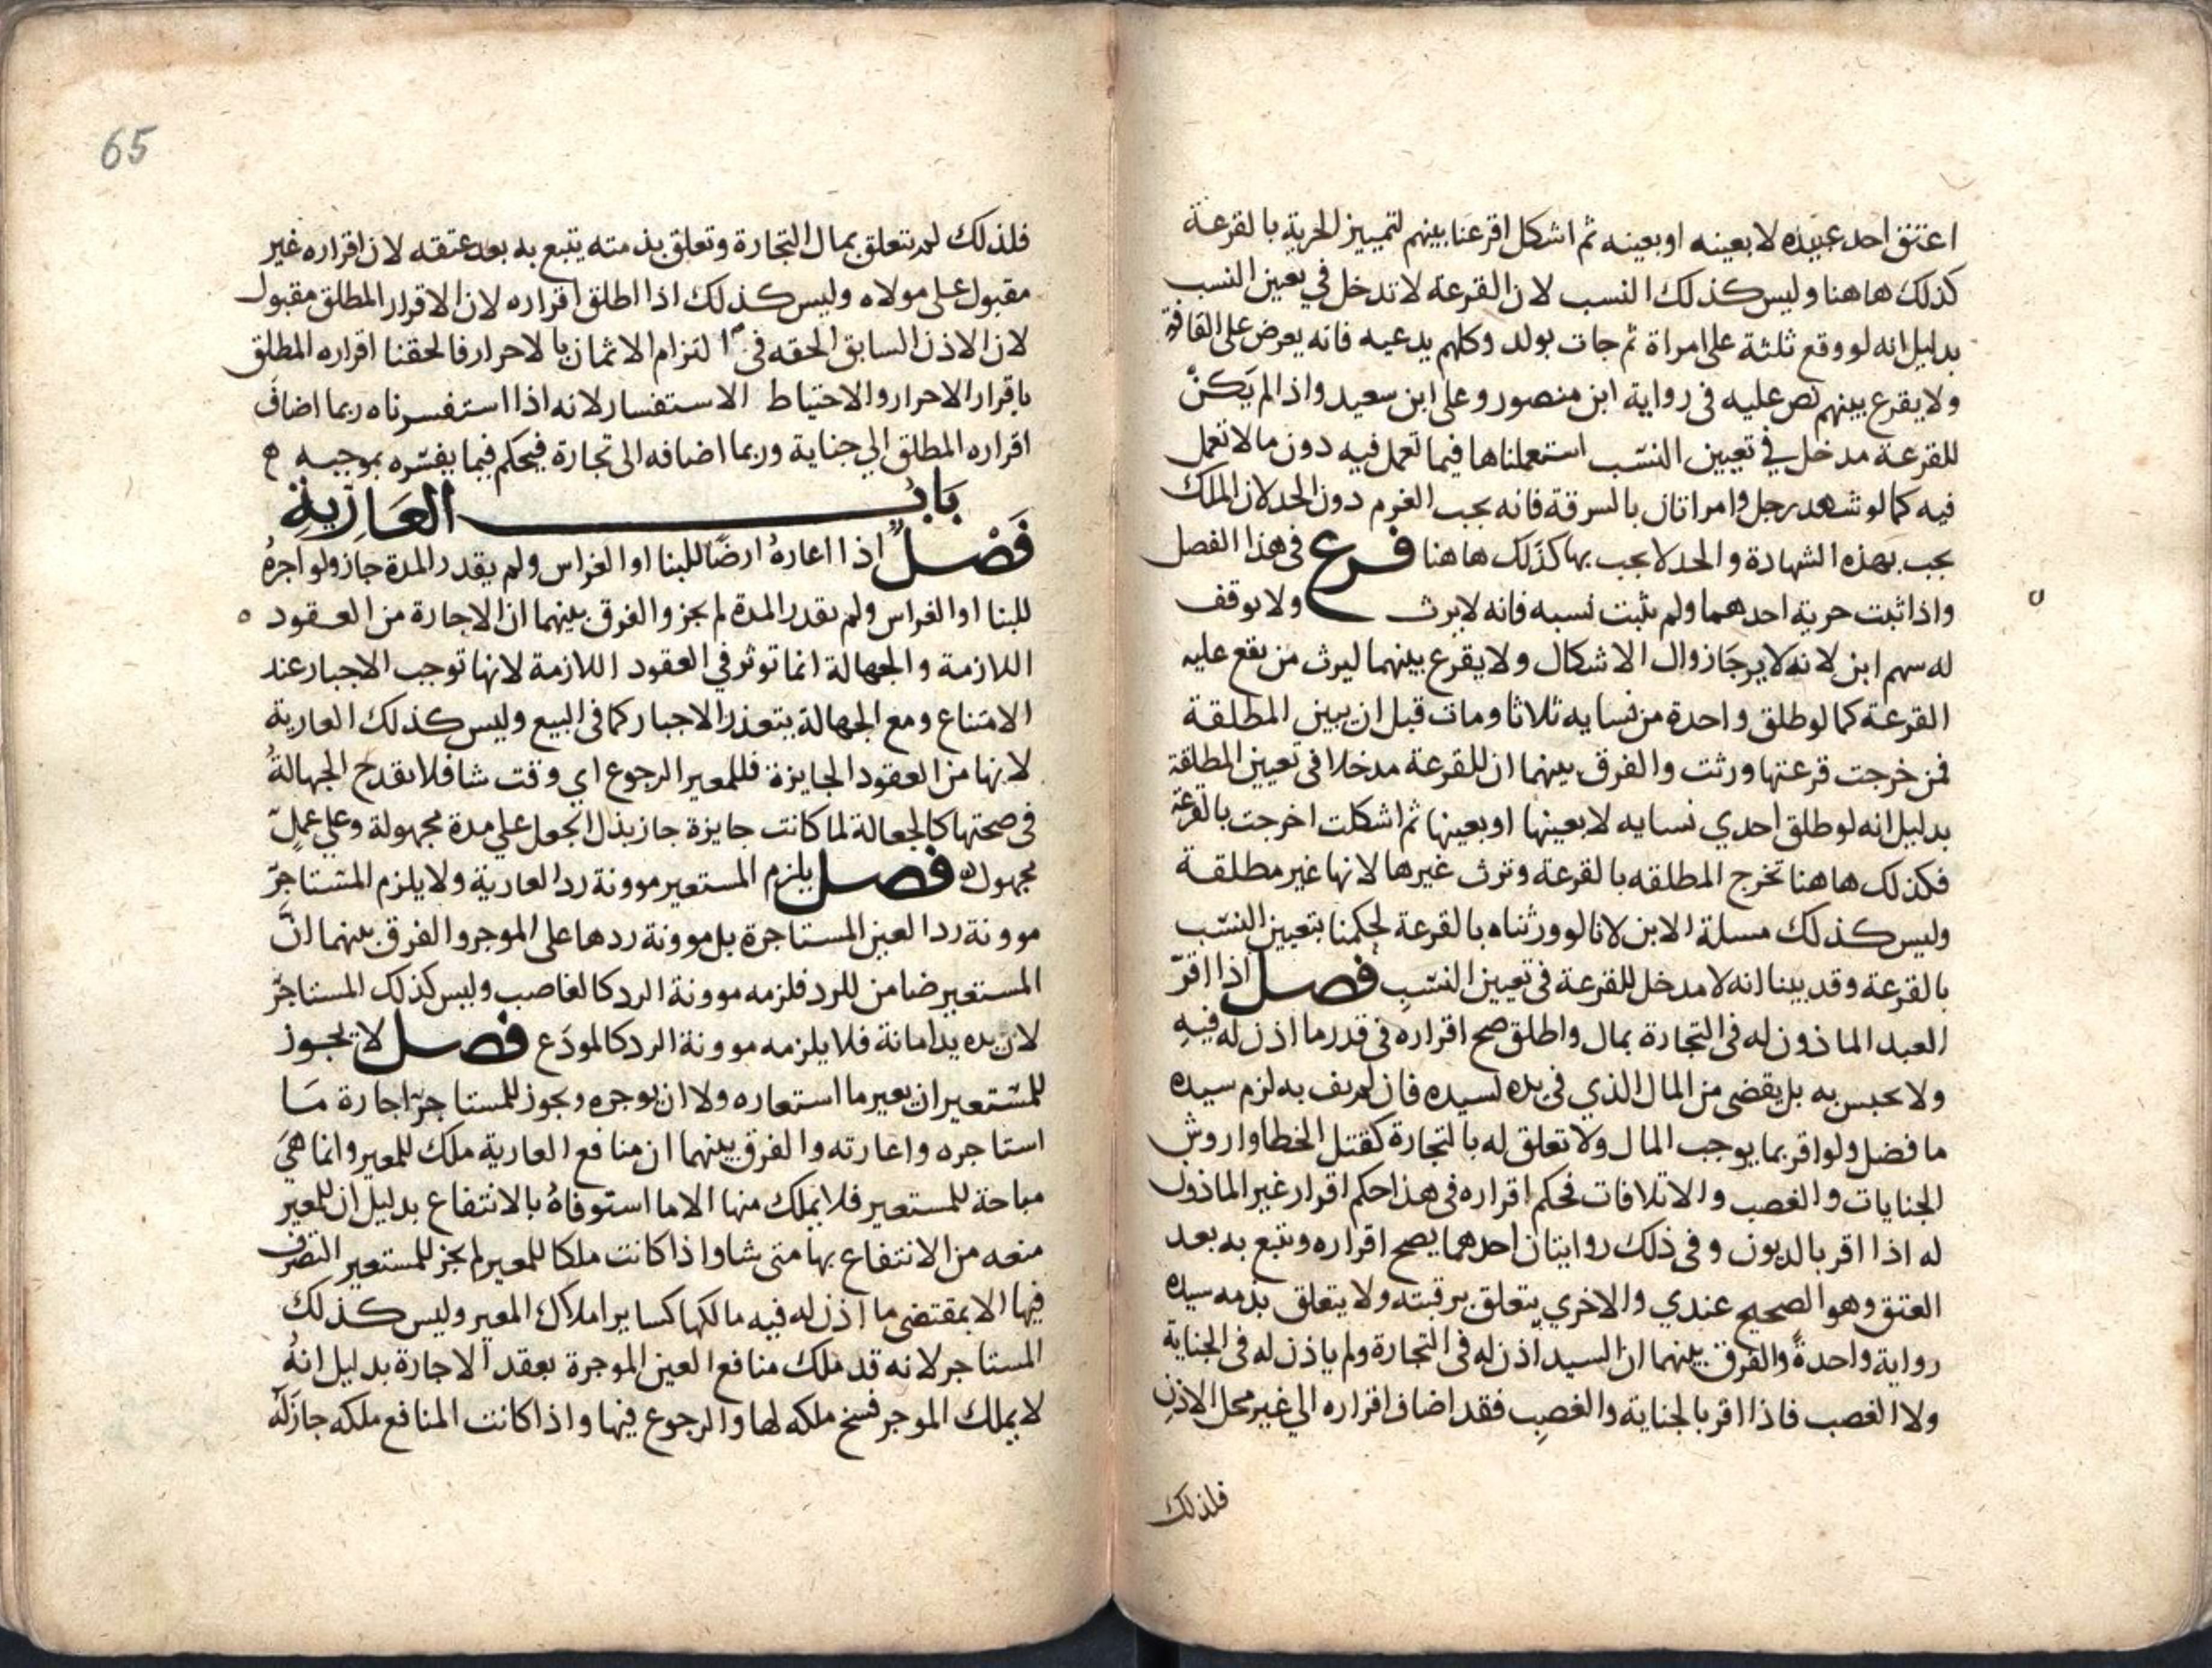 اعتق احد عبيده لا بعينه او بعينه ثم اشكل اقرعنا بينهم لتمييز الحرية بالقرعة
كذلك هاهنا وليس كذلك النسب لان القرعة لا تدخل في تعيين النسب
بدليل انه لو وقع ثلثة على امراة ثم جات بولد وكلهم يدعيه فانه يعرض على القافة
ولا يقرع بينهم نص عليه في رواية ابن منصور وعلى ابن سعيد واذا لم يكن
للقرعة مدخل في تعيين النسب استعملناها فيما تعمل فيه دون ما لا تعمل
فيه كما لو شهد رجل وامراتان بالسرقة فانه يجب الغرم دون الحد لان الملك
يجب بهذه الشهادة والحد لا يجب بها كذلك هاهنا فرع في هذا الفصل
واذا ثبت حرية احدهما ولم يثبت نسبه فانه لا يرث ولا يوقف
له سهم ابن لانه لا يرجا زوال الاشكال ولا يقرع بينهما ليرث من يقع عليه
القرعة كما لو طلق واحدة من نسايه ثلاثا ومات قبل ان يبين المطلقة
فمن خرجت قرعتها ورثت والفرق بينهما ان للقرعة مدخلا في تعيين المطلقة
بدليل انه لو طلق احدي نسايه لا بعينها او بعينها ثم اشكلت اخرجت بالقرعة
فكذلك هاهنا تخرج المطلقه بالقرعة وترث غيرها لانها غير مطلقة
وليس كذلك مسلة الابن لانا لو ورثناه بالقرعة لحكمنا بتعيين النسب
بالقرعة وقد بينا انه لا مدخل للقرعة في تعيين النسب فصل اذا اقر
العبد الماذون له في التجارة بمال واطلق صح اقراره في قدر ما اذن له فيه
ولا يحبس به بل يقضى من المال الذي في يده لسيده فان لم يف به لزم سيده
ما فضل ولو اقر بما يوجب المال ولا تعلق له بالتجارة كقتل الخطا واروش
الجنايات والغصب والاتلافات فحكم اقراره في هذا حكم اقرار غير الماذون
له اذا اقر بالديون وفي ذلك روايتان احدهما يصح اقراره ويتبع به بعد
العتق وهو الصحيح عندي والاخري يتعلق برقبته ولا يتعلق بذمه سيده
رواية واحدة والفرق بينهما ان السيد اذن له في التجارة ولم ياذن له في الجناية
ولا الغصب فاذا اقر بالجناية والغصب فقد اضاف اقراره الي غير محل الاذن
فلذلك
65
فلذلك لم يتعلق بمال التجارة وتعلق بذمته يتبع به بعد عتقه لان اقراره غير
مقبول على مولاه وليس كذلك اذا اطلق اقراره لان الاقرار المطلق مقبول
لان الاذن السابق الحقه في التزام الاثمان بالاحرار فالحقنا اقراره المطلق
باقرار الاحرار والاحتياط الاستفسار لانه اذا استفسرناه ربما اضاف
اقراره المطلق الي جناية وربما اضافه الى تجارة فيحكم فيما يفسره بموجبه
باب العارية
فصل اذا اعاره ارضا للبنا او الغراس ولم يقدر المدة جاز ولو اجره
للبنا او الغراس ولم يقدر المدة لم يجز والفرق بينهما ان الاجارة من العقود
اللازمة والجهالة انما توثر في العقود اللازمة لانها توجب الاجبار عند
الامتناع ومع الجهالة يتعذر الاجبار كما في البيع وليس كذلك العارية
لانها من العقود الجايزة فللمعير الرجوع اي وقت شا فلا يقدح الجهالة
في صحتها كالجعالة لما كانت جايزة جاز بذل الجعل علي مدة مجهولة وعلي عمل
مجهول فصل يلزم المستعير موونة رد العارية ولا يلزم المستاجر
موونة رد العين المستاجرة بل موونة ردها على الموجر والفرق بينهما ان
المستعير ضامن للرد فلزمه موونة الرد كالغاصب وليس كذلك المستاجر
لان يده يد امانة فلا يلزمه موونة الرد كالمودع فصل لا يجوز
للمستعير ان يعير ما استعاره ولا ان يوجره ويجوز للمستاجر اجارة ما
استاجره واعارته والفرق بينهما ان منافع العارية ملك للمعير وانما هي
مباحة للمستعير فلا يملك منها الا ما استوفاه بالانتفاع بدليل ان للمعير
منعه من الانتفاع بها متى شا واذا كانت ملكا للمعير لم يجز للمستعير التصرف
فيها الا بمقتضى ما اذن له فيه مالكها كساير املاك المعير وليس كذلك
المستاجر لانه قد ملك منافع العين الموجرة بعقد الاجارة بدليل انه
لا يملك الموجر فسخ ملكه لها والرجوع فيها واذا كانت المنافع ملكه جاز له